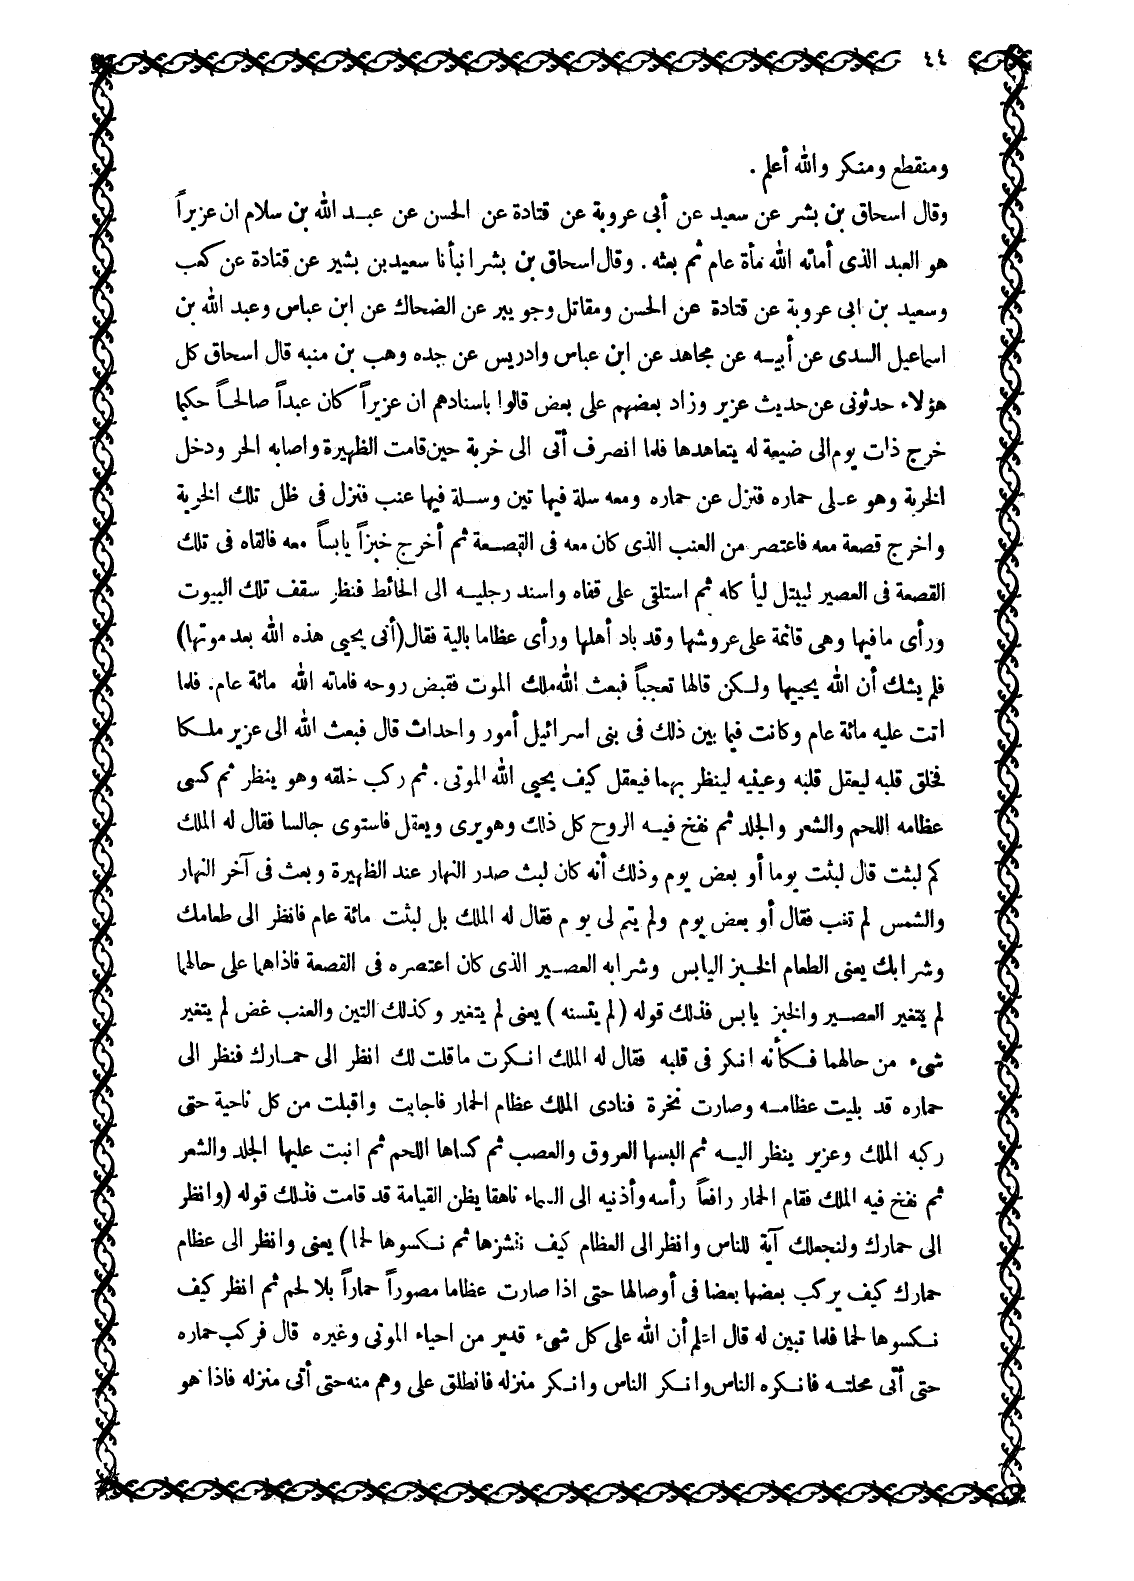 ٤٤
ومنقطع ومنكر والله أعلم .
وقال اسحاق بن بشر عن سعيد عن أبى عروبة عن قتادة عن الحسن عن عبد الله بن سلام ان عزيراً
هو العبد الذى أماته الله مأة عام ثم بعثه . وقال اسحاق بن بشر انبأنا سعيد بن بشير عن قتادة عن كعب
وسعيد بن ابى عروبة عن قتادة عن الحسن ومقاتل وجويبر عن الضحاك عن ابن عباس وعبد الله بن
اسماعيل السدى عن أبيه عن مجاهد عن ابن عباس وادريس عن جده وهب بن منبه قال اسحاق كل
هؤلاء حدثونى عن حديث عزير وزاد بعضهم على بعض قالوا باسنادهم ان عزيراً كان عبداً صالحاً حكيما
خرج ذات يوم الى ضيعة له يتعاهدها فلما انصرف أتى الى خربة حين قامت الظهيرة واصابه الحر ودخل
الخربة وهو على حماره فنزل عن حماره ومعه سلة فيها تين وسلة فيها عنب فنزل فى ظل تلك الخربة
واخرج قصعة معه فاعتصر من العنب الذى كان معه فى القصعة ثم أخرج خبزاً يابساً معه فالقاه فى تلك
القصعة فى العصير ليبتل ليأكله ثم استلقى على قفاه واسند رجليه الى الحائط فنظر سقف تلك البيوت
ورأى مافيها وهى قائمة على عروشها وقد باد أهلها ورأى عظاما بالية فقال (أنى يحيى هذه الله بعد موتها)
فلم يشك أن الله يحييها ولكن قالها تعجباً فبعث الله ملك الموت فقبض روحه فاماته الله مائة عام. فلما
اتت عليه مائة عام وكانت فيما بين ذلك فى بنى اسرائيل أمور واحداث قال فبعث الله الى عزير ملكا
فخلق قلبه ليعقل قلبه وعينيه لينظر بهما فيعقل كيف يحيى الله الموتى. ثم ركب خلقه وهو ينظر ثم كسى
عظامه اللحم والشعر والجلد ثم نفخ فيه الروح كل ذلك وهو يرى ويعقل فاستوى جالسا فقال له الملك
كم لبثت قال لبثت يوما أو بعض يوم وذلك أنه كان لبث صدر النهار عند الظهيرة وبعث فى آخر النهار
والشمس لم تغب فقال أو بعض يوم ولم يتم لى يوم فقال له الملك بل لبثت مائة عام فانظر الى طعامك
وشرابك يعنى الطعام الخبز اليابس وشرابه العصير الذى كان اعتصره فى القصعة فاذاهما على حالهما
لم يتغير العصير والخبز يابس فذلك قوله (لم يتسنه) يعنى لم يتغير وكذلك التين والعنب غض لم يتغير
شىء من حالهما فكأنه انكر فى قلبه فقال له الملك انكرت ماقلت لك انظر الى حمارك فنظر الى
حماره قد بليت عظامه وصارت نخرة فنادى الملك عظام الحمار فاجابت واقبلت من كل ناحية حتى
ركبه الملك وعزير ينظر اليه ثم البسها العروق والعصب ثم كساها اللحم ثم انبت عليها الجلد والشعر
ثم نفخ فيه الملك فقام الحمار رافعاً رأسه وأذنيه الى السماء ناهقا يظن القيامة قد قامت فذلك قوله (وانظر
الى حمارك ولنجعلك آية للناس وانظر الى العظام كيف ننشزها ثم نكسوها لحما) يعنى وانظر الى عظام
حمارك كيف يركب بعضها بعضا فى أوصالها حتى اذا صارت عظاما مصوراً حماراً بلا لحم ثم انظر كيف
نكسوها لحما فلما تبين له قال اعلم أن الله على كل شىء قدير من احياء الموتى وغيره قال فركب حماره
حتى أتى محلته فانكره الناس وانكر الناس وانكر منزله فانطلق على وهم منه حتى أتى منزله فاذا هو